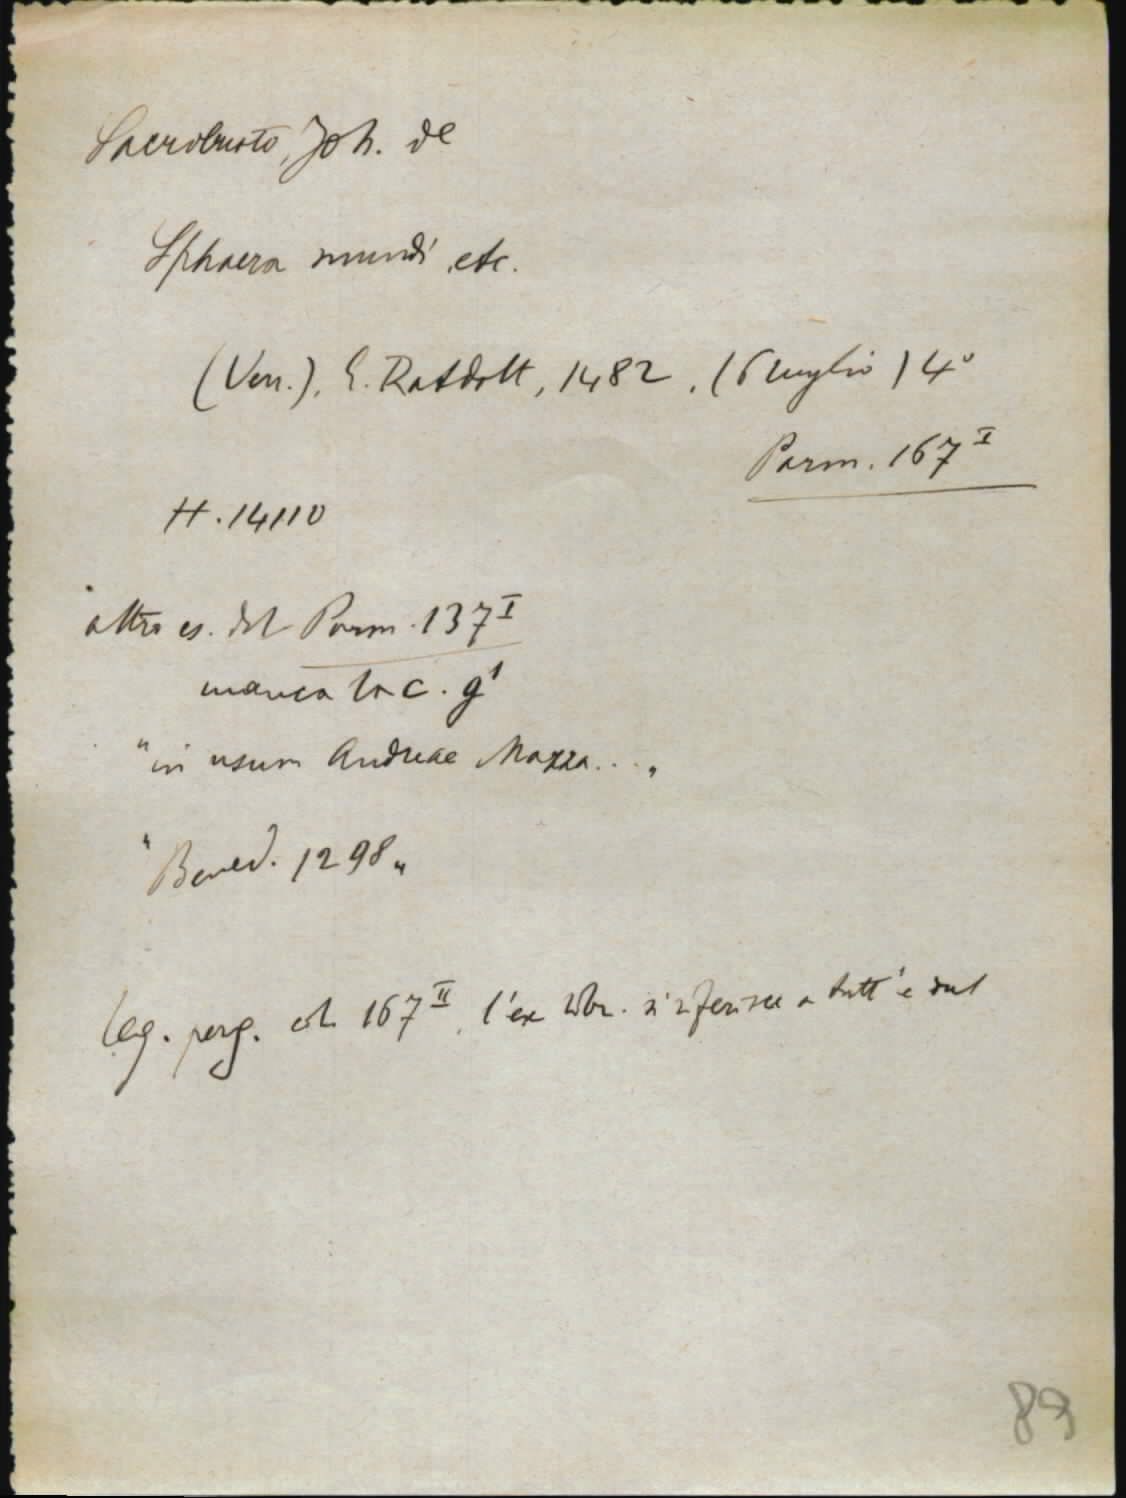 Sacrobusto, Joh. de
Sphaera mundi, etc.
(Ven.), E. Ratdolt, 1482, (6 luglio) 4°
Parm. 167 I
H. 14110
altro es. del Parm. 137 I
manca la c. g1
"in usum Andreae Mazza...„
"Bened. 1298„
leg. perg. col 167 II, l'ex libr. si riferisce a tutt'e due
89